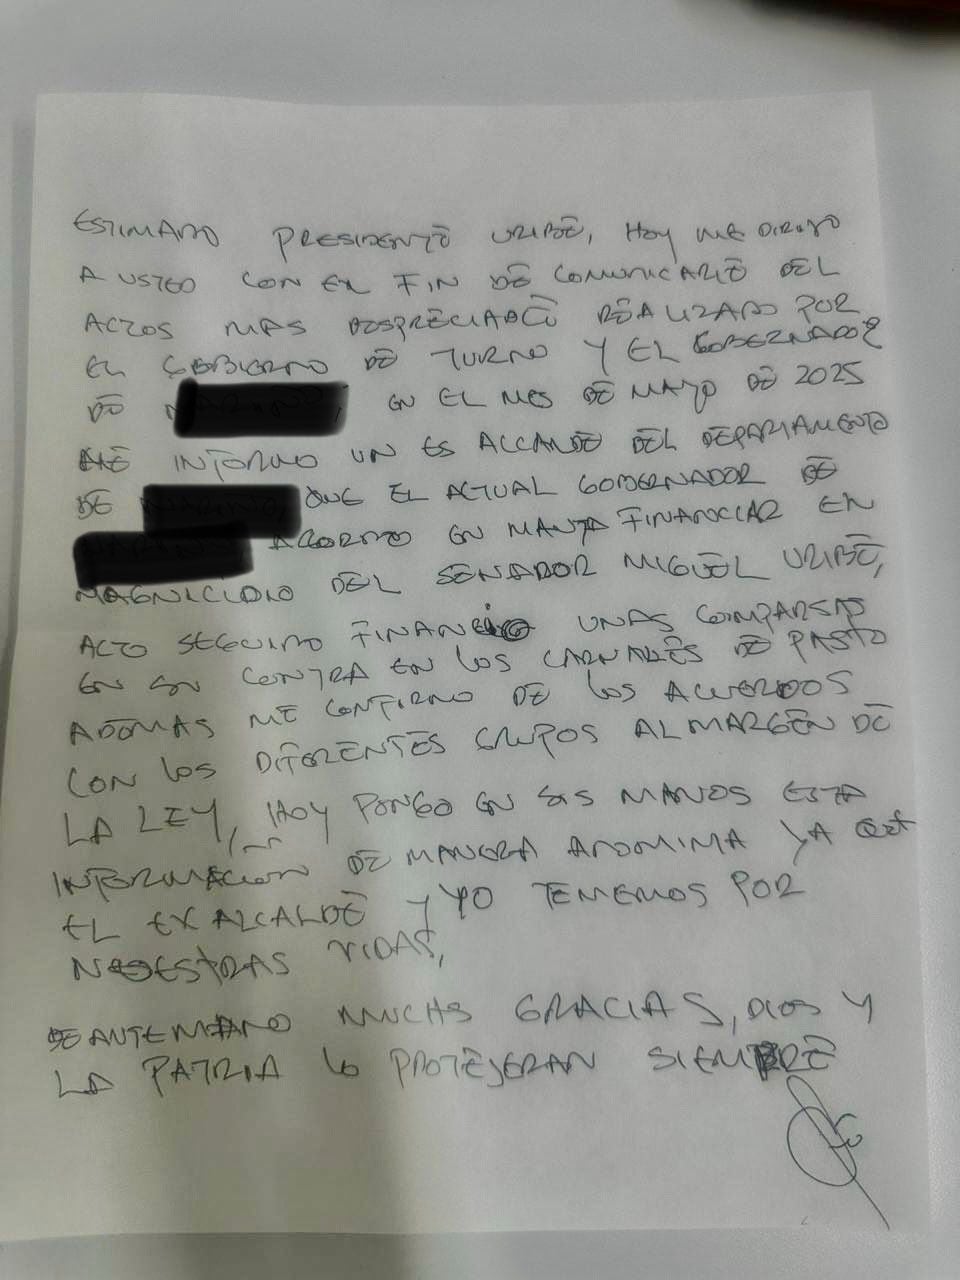 ESTIMADO PRESIDENTE URIBE, HOY ME DIRIJO
A USTED CON EL FIN DE COMUNICARLE DEL
ACTOS MAS DESPRECIABLE REALIZADO POR
EL GOBIERNO DE TURNO Y EL GOBERNADOR
DE EN EL MES DE MAYO DE 2025
ME INFORMO UN ES ALCANDE DEL DEPARTAMENTO
DE QUE EL ACTUAL GOBERNADOR DE
ACORDO EN MANTA FINANCIAR EN
MAGNICIDIO DEL SENADOR MIGUEL URIBE,
ACTO SEGUIDO FINANCIO UNAS COMPARSAS
EN SU CONTRA EN LOS CARNAVALES DE PASTO
ADEMAS ME CONFIRMO DE LOS ACUERDOS
CON LOS DIFERENTES GRUPOS AL MARGEN DE
LA LEY, HOY PONGO EN SUS MANOS ESTA
INFORMACION DE MANERA ANONIMA YA QUE
EL EX ALCALDE Y YO TEMEMOS POR
NUESTRAS VIDAS,
DE ANTEMANO MUCHAS GRACIAS, DIOS Y
LA PATRIA LO PROTEJERAN SIEMPRE